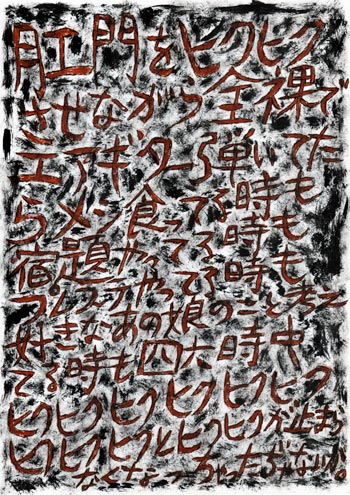 肛門をヒクヒク
させながら全裸で
エアギター弾いてた
らメシ食ってる時も
宿題やってる時も
つレフテやってる時も
好きなあの娘のこと考え
てる時も四六時中
ヒクヒクヒクヒクヒク
ヒクヒクヒクとヒクヒクが止まら
なくなっちゃったぢゃないか。